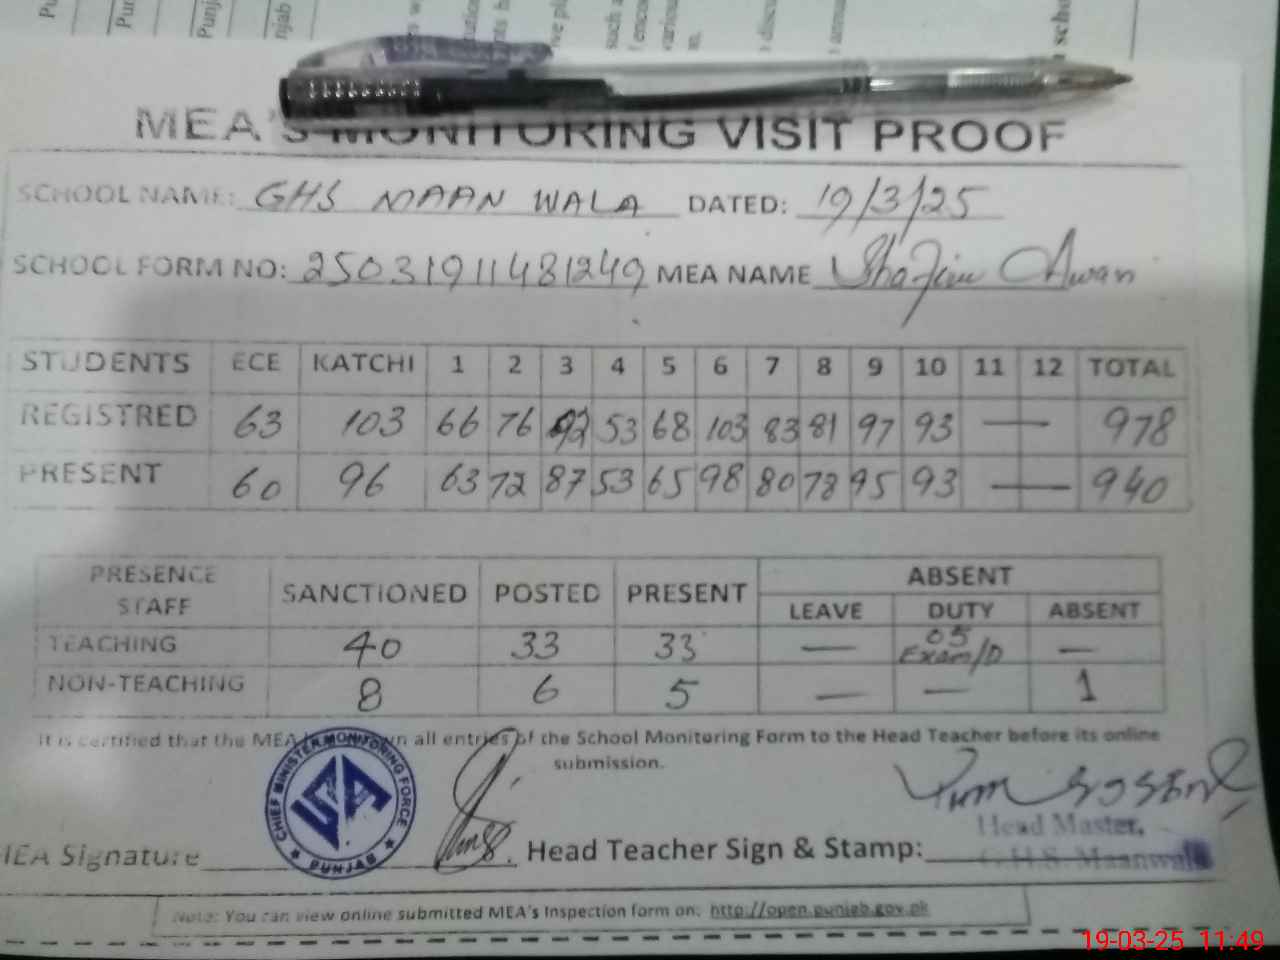 MEA'S MONITORING VISIT PROOF
SCHOOL NAME: GHS MAAN WALA DATED: 19/3/25
SCHOOL FORM NO: 25031911481249 MEA NAME Awan
STUDENTS ECE KATCHI 1 2 3 4 5 6 7 8 9 10 11 12 TOTAL
REGISTRED 63 103 66 76 92 53 68 103 83 81 97 93 — 978
PRESENT 60 96 63 72 87 53 65 98 80 78 95 93 — 940
PRESENCE STAFF SANCTIONED POSTED PRESENT ABSENT
LEAVE DUTY ABSENT
TEACHING 40 33 33 — 05 Exam/D —
NON-TEACHING 8 6 5 — — 1
It is certified that the MEA all entries of the School Monitoring Form to the Head Teacher before its online
submission.
CHIEF MINISTER MONITORING FORCE
PUNJAB
Head Master,
G.H.S. Maanwala
MEA Signature Head Teacher Sign & Stamp:
Note: You can view online submitted MEA's Inspection form on: http://open.punjab.gov.pk
19-03-25 11:49